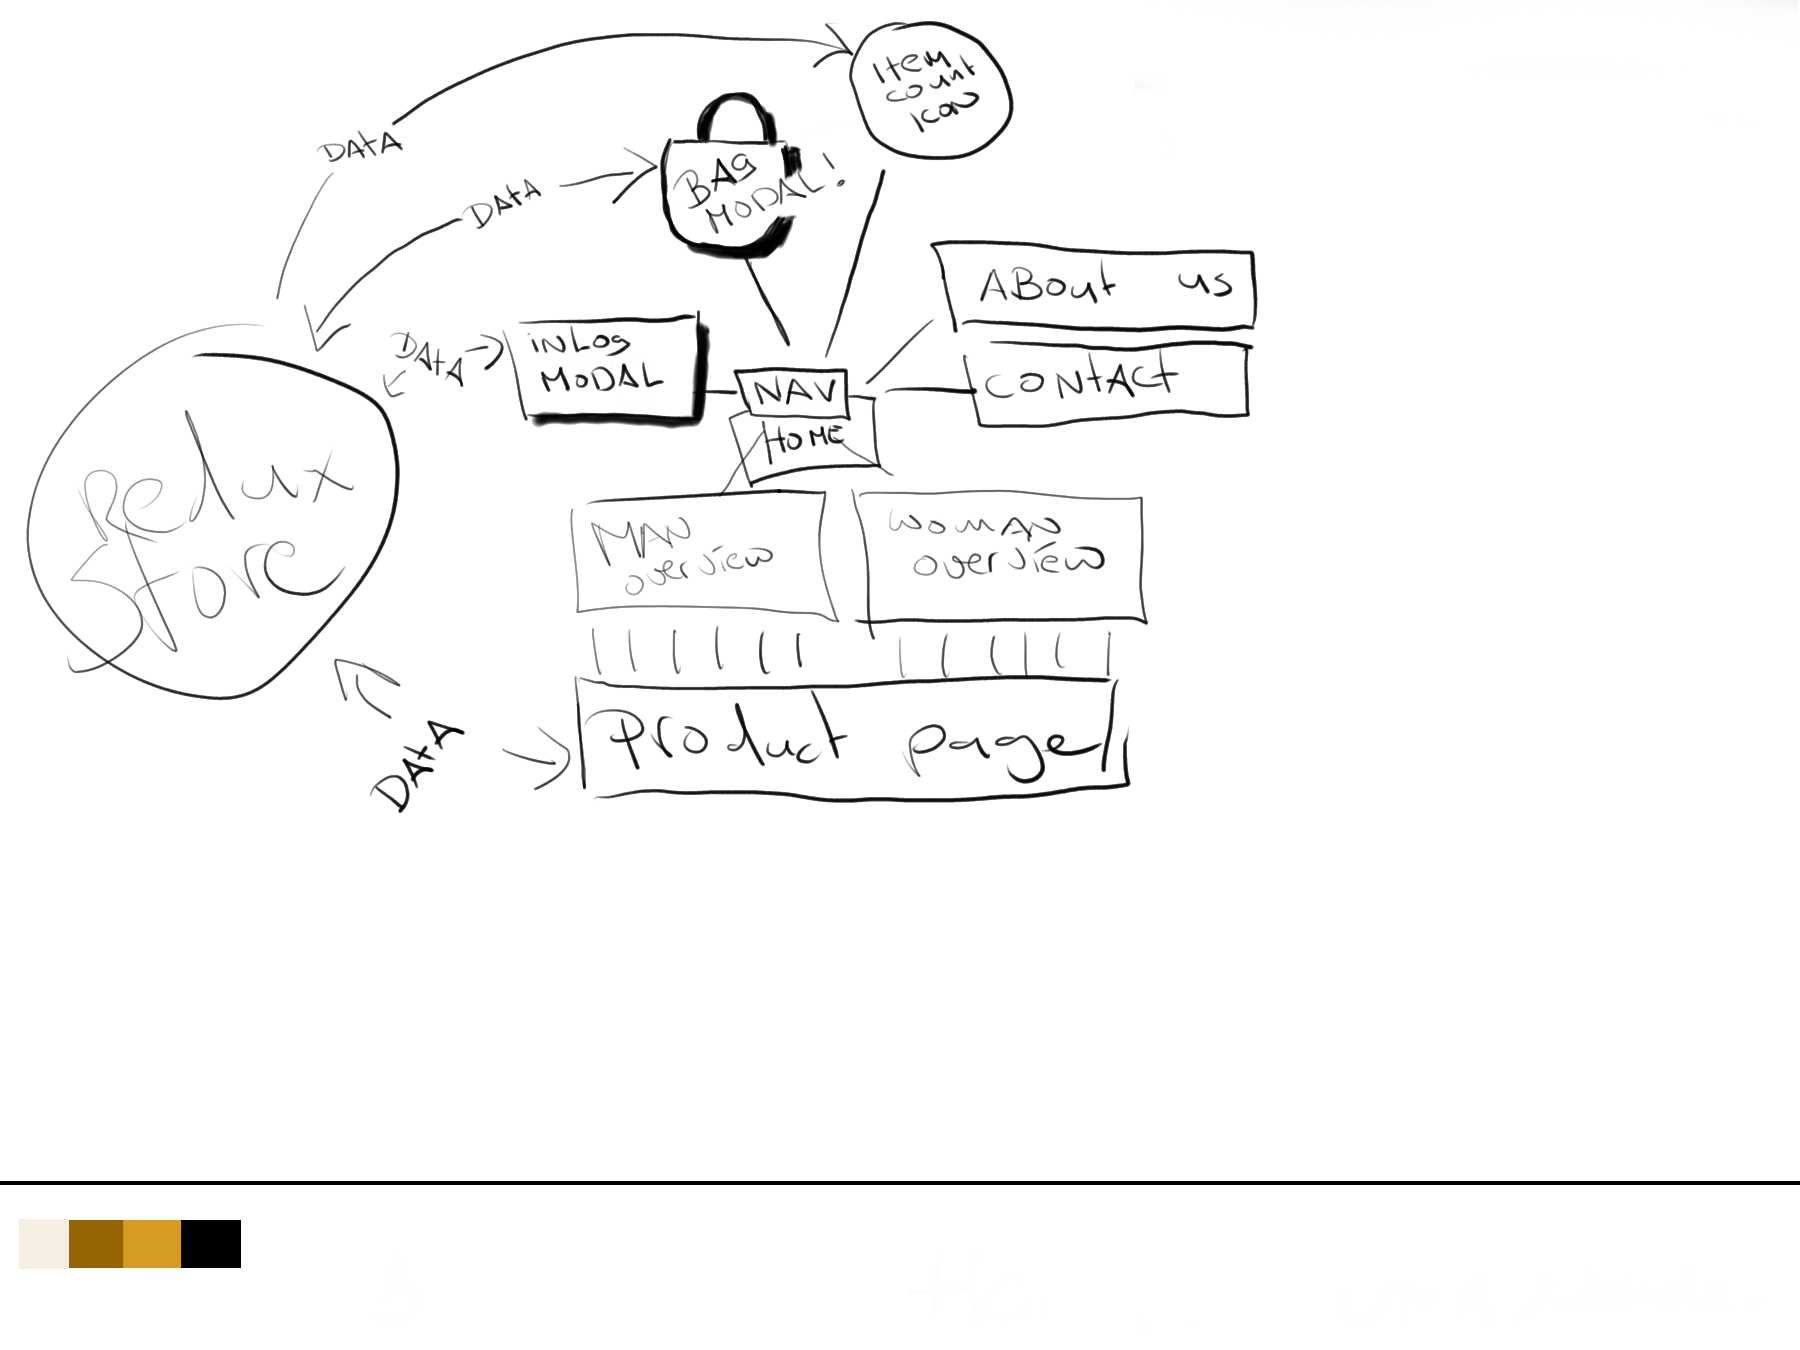 ITEM
COUNT
ICON
DATA
BAG
MODAL!
DATA
ABOUT US
INLOG
MODAL
DATA
NAV
CONTACT
HOME
Redux
Store
MAN
overview
WOMAN
overview
Product page
DATA